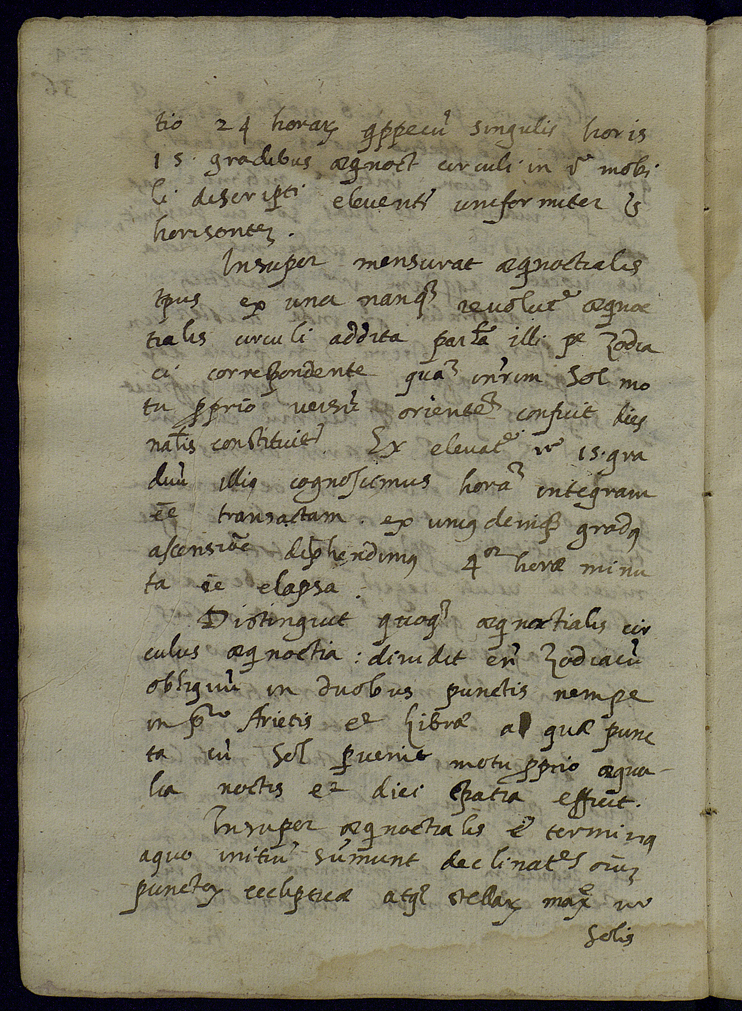 tio 24 horaꝝ singulis horis
15. gradibus æqnoct circuli in mobi
li descripti elevent' uniformiter
horisontē.
Insuper mensurat æqnoctialis
tpus ex una nanq3 revolut^e æqnoc
tialis circuli addita illi pe Zodia
ci correspondente qua3 int'rim Sol mo
tu ꝓprio versū oriente3 conficit dies
nat̄lis constituit'. Ex elevat^e 15. gra
duū illiꝰ cognoscimus hora3 integram
eē transactam. ex uniꝰ deniq3 gradꝰ
ascensiōe dep̄hendimꝰ 4^or horæ minu
ta eē elapsa.
Distinguit quoq3 æqnoctialis cir
culus æqnoctia: dividit en̄ Zodiacū
obliquū in duobus punctis nempe
in p^o Arietis et Libræ ad quæ punc
ta cū Sol ꝑvenit motu ꝓprio æqua-
lia noctis et diei spatia efficit.
Insuper æqnoctialis ē terminꝰ
a quo initiū sumunt declinat^es oīuꝫ
punctoꝝ eclipticæ atq3 stellaꝝ max^e vo
Solis